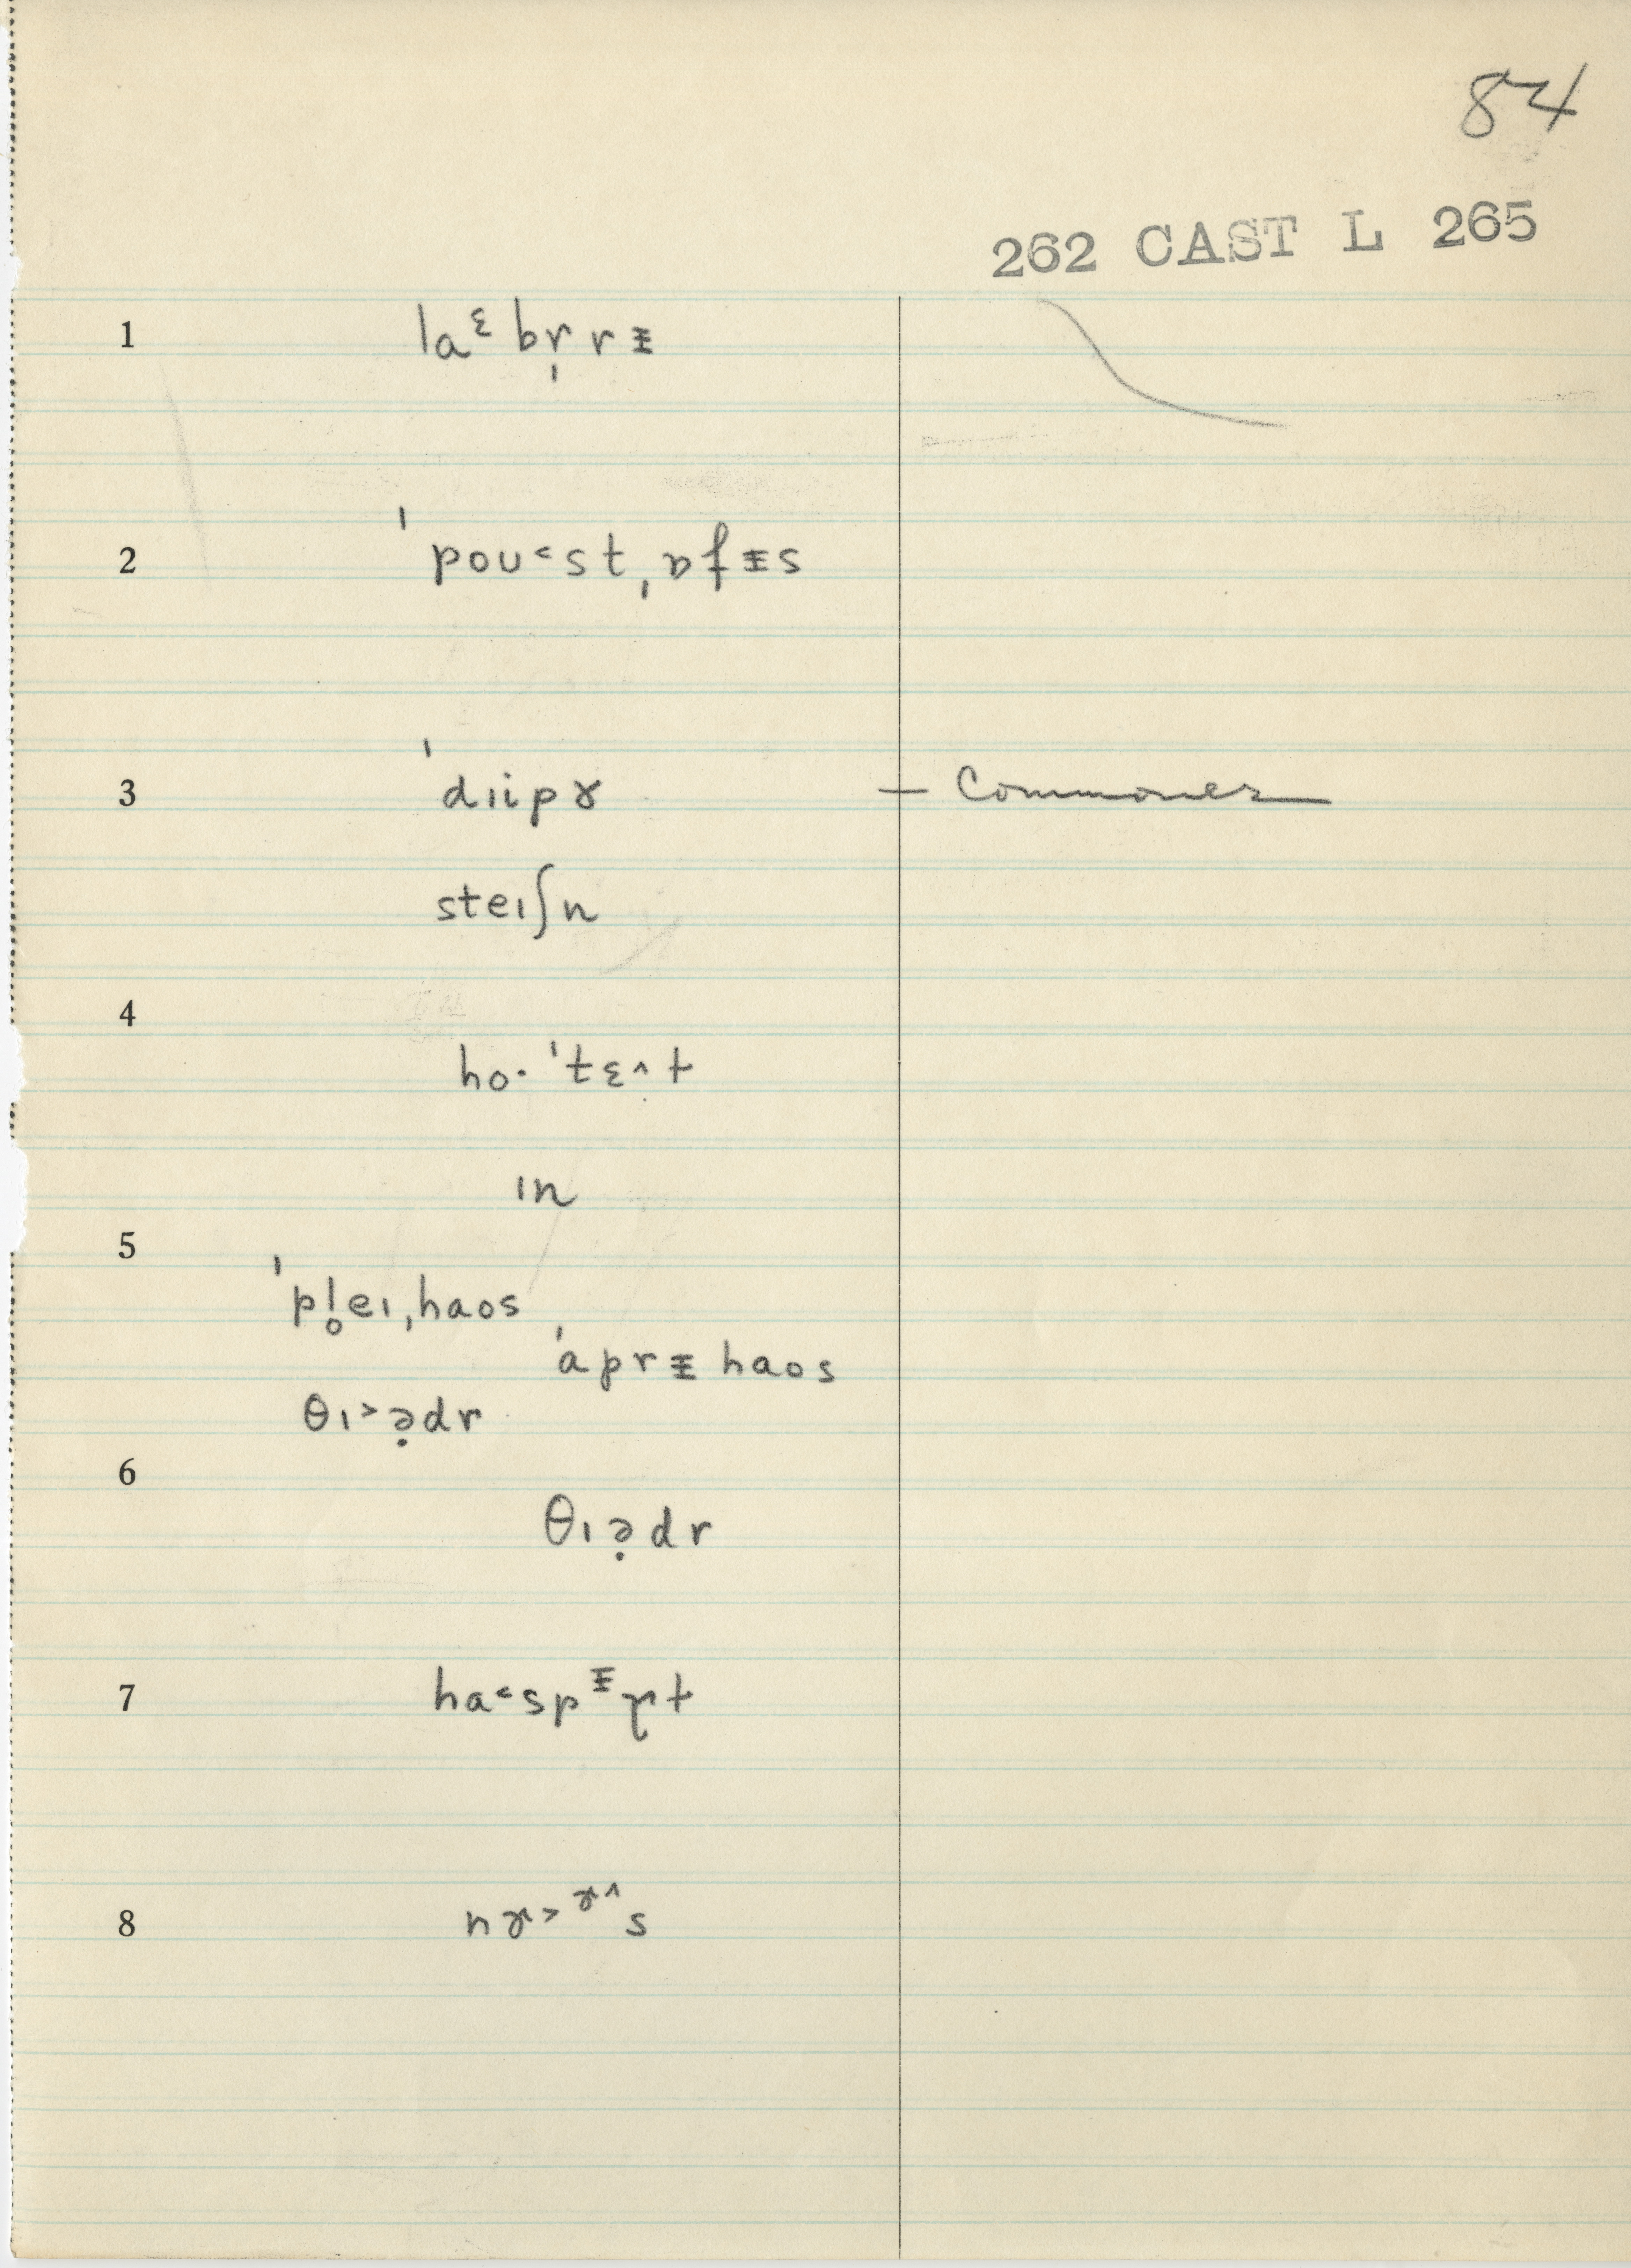 84
262 CAST L 265
1 laᵋ br̩ rᵻ
2 ˈpou˂st ˌɒfᵻs
3 ˈdɪipɤ — Commoner
steɪʃn
4
ho· ˈtɛ˄t
ɪn
5
ˈpl̥eɪˌhaos
ˈaprᵻ haos
θɪ˃ə̣dr
6
θɪə̣dr
7 ha˂sp ᵻ t
8